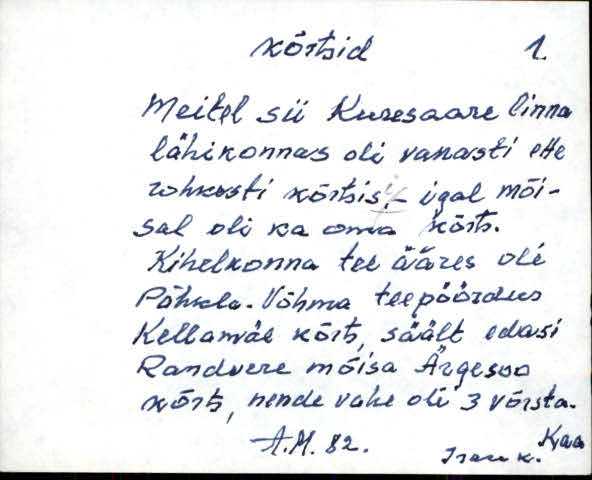 kõrtsid 1.
Meitel sii Kuresaare linna
lähikonnas oli vanasti ette
rohkesti kõrtsisi - igal mõi-
sal oli ka oma kõrts.
Kihelkonna tee ääres oli
Pähkla-Võhma teepöördus
Kellamäe kõrts, säält edasi
Randvere mõisa Ärgesoo
kõrts, nende vahe oli 3 võrsta.
A.M. 82. Kaa
k.